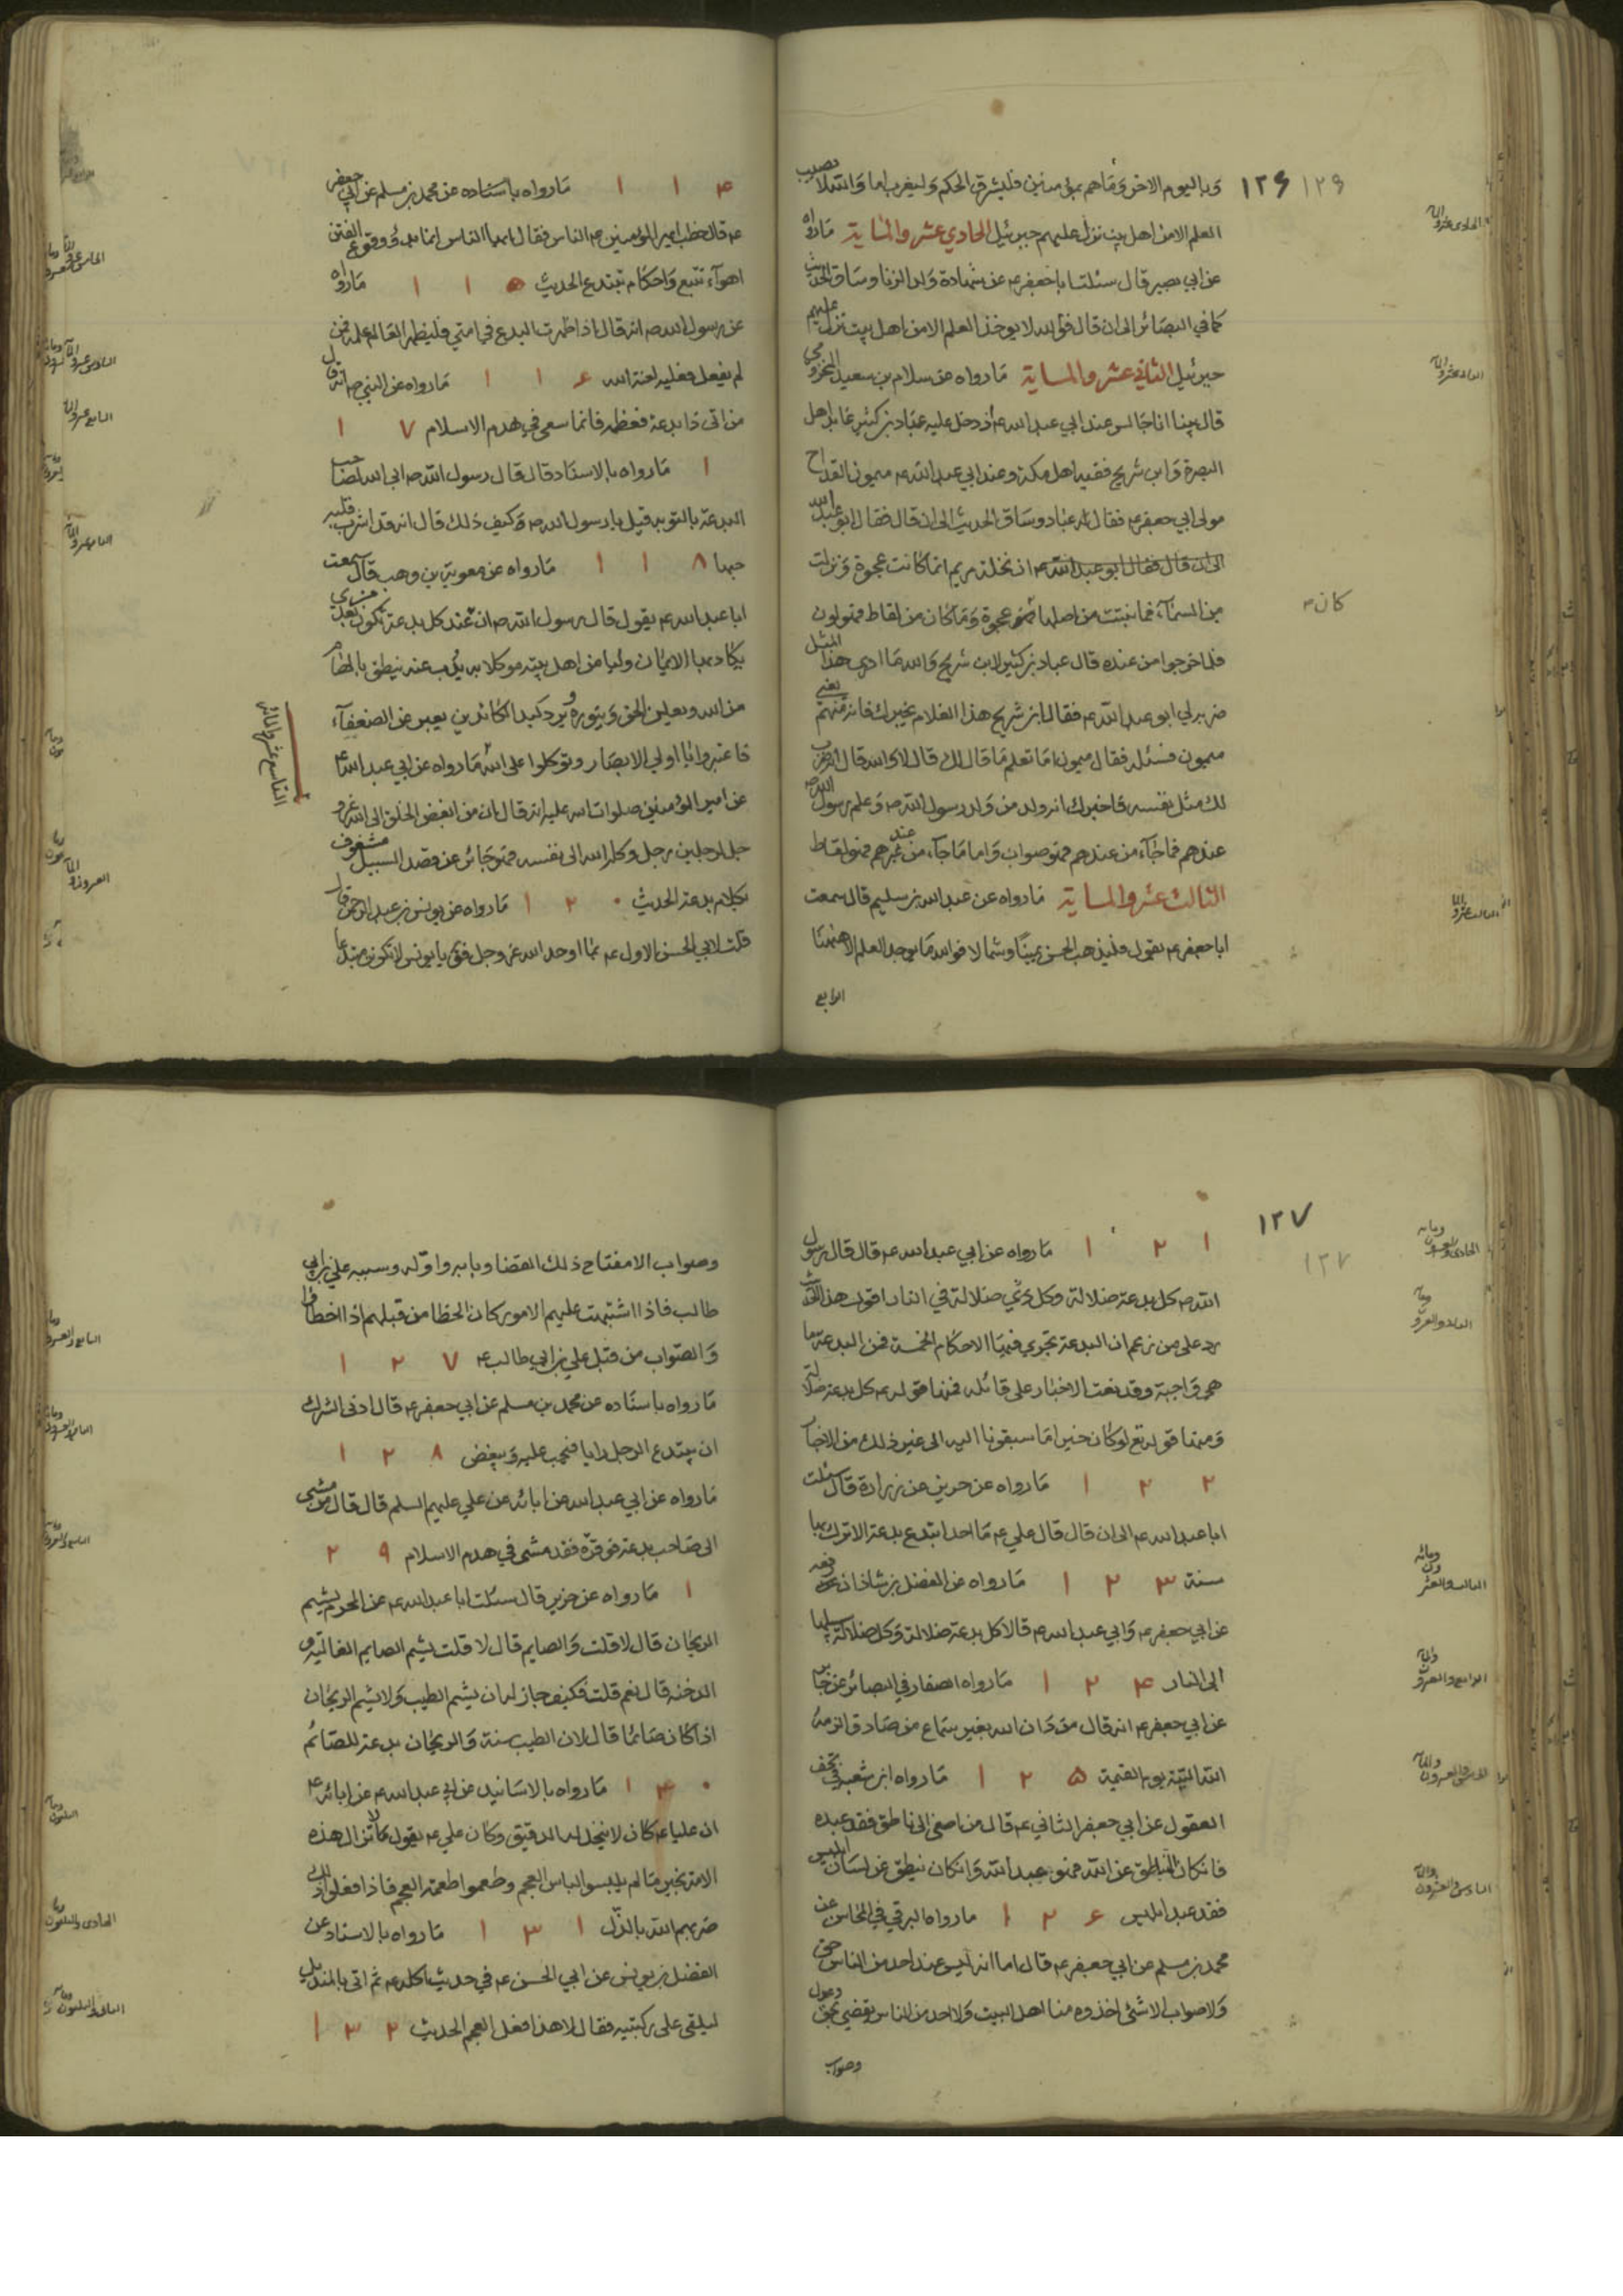 ١٢۶ ١٢۶
وباليوم الاخر وماهم بمؤمنين فليشرق الحكم وليغرب اما والله لا يصيب
العلم الا من اهل بيت نزل عليهم جبرئيل الحادي عشر والماية مارواه
عن ابي بصير قال سئلت اباجعفر عن شهادة ولد الزنا وساق الحديث
كما في البصائر الى ان قال فوالله لا يوخذ العلم الا من اهل بيت نزل عليهم
جبرئيل الثاني عشر والماية مارواه عن سلام بن سعيد المخزومي
قال بينا انا جالس عند ابي عبد الله ع اذ دخل عليه عباد بن كثير عابد اهل
البصرة وابن شريح فقيه اهل مكة وعند ابي عبد الله ع ميمون القداح
مولى ابي جعفر ع فقال له عباد وساق الحديث الى ان قال فقال ابو عبد الله
الى ان قال فقال ابو عبد الله ع ان نخلة مريم انما كانت عجوة ونزلت
من السماء فما نبتت من اصلها عجوة وما كان من لقاط فهو لون
كان
فلما خرجوا من عنده قال عباد بن كثير لابن شريح والله ما ادري هذا المثل
ضربه لي ابو عبد الله ع فقال ابن شريح هذا الغلام يخبرك فانه منهم يعني
ميمون فسئله فقال ميمون اما تعلم ما قال لك قال لا والله قال انه ضرب
لك مثل نفسه فاخبرك انه ولد من ولد رسول الله ص وعلم رسول الله ص
عندهم فما جاء من عندهم فهو صواب واما ما جاء من عند غيرهم فهو لقاط
الثالث عشر والماية مارواه عن عبد الله بن سليم قال سمعت
اباجعفر ع يقول فليذهب الحسن يمينا وشمالا فوالله ما يوجد العلم الا ههنا
الرابع
۴ ١ ١ مارواه باسناده عن محمد بن مسلم عن ابي جعفر
ع قال خطب امير المؤمنين ع الناس فقال يا ايها الناس انما بدؤ وقوع الفتن
اهواء تتبع واحكام تبتدع الحديث ۵ ١ ١ مارواه
عن رسول الله ص انه قال اذا ظهرت البدع في امتي فليظهر العالم علمه فمن
لم يفعل فعليه لعنة الله ۶ ١ ١ مارواه عن النبي ص انه قال
من اتى ذا بدعة فعظمه فانما سعى في هدم الاسلام ٧ ١
١ مارواه بالاسناد قال قال رسول الله ص ابى الله لصاحب
البدعة بالتوبه قيل يا رسول الله ص وكيف ذلك قال انه قد اشرب قلبه
حبها ٨ ١ ١ مارواه عن معوية بن وهب قال سمعت
ابا عبد الله ع يقول قال رسول الله ص ان عند كل بدعة تكون من بعدي
يكاد بها الايمان وليا من اهل بيتي موكلا به يذب عنه ينطق بالهام
من الله ويعلن الحق وينوره ويرد كيد الكائدين يعبر عن الضعفاء
فاعتبروا يا اولي الابصار وتوكلوا على الله مارواه عن ابي عبد الله ع
التاسع عشر والمائة
عن امير المؤمنين صلوات الله عليه انه قال ان من ابغض الخلق الى الله عز و
جل لرجلين رجل وكله الله الى نفسه فهو جائر عن قصد السبيل مشغوف
بكلام بدعة الحديث ٠ ٢ ١ مارواه عن يونس بن عبد الرحمن قال
قلت لابي الحسن الاول ع بما اوحد الله عز وجل فق يا يونس لا تكونن مبتدعا
١٢٧
١٢٧
١ ٢ ١ مارواه عن ابي عبد الله ع قال قال رسول
الله ص كل بدعة ضلالة وكل ضلالة في النار اقول هذا الحديث
رد على من زعم ان البدعة تجري فيها الاحكام الخمسة فمن البدعة ما
هي واجبة وقد نعت الاخبار على قائله فمنها قوله ع كل بدعة ضلالة
ومنها قوله تع لو كان خيرا ما سبقونا اليه الى غير ذلك من الاخبار
٢ ٢ ١ مارواه عن حريز عن زرارة قال سئلت
ابا عبد الله ع الى ان قال قال علي ع ما احد ابتدع بدعة الا ترك بها
سنة ٣ ٢ ١ مارواه عن الفضل بن شاذان رفعه
عن ابي جعفر ع وابي عبد الله ع قالا كل بدعة ضلالة وكل ضلالة سبيلها
الى النار ۴ ٢ ١ مارواه الصفار في البصائر عن جابر
عن ابي جعفر ع انه قال من دان الله بغير سماع من صادق الزمه
الله التيه يوم القيمة ۵ ٢ ١ مارواه ابن شعبة في تحف
العقول عن ابي جعفر الثاني ع قال من اصغى الى ناطق فقد عبده
فان كان الناطق عن الله فهو عبد الله وان كان ينطق عن لسان ابليس
فقد عبد ابليس ۶ ٢ ١ مارواه البرقي في المحاسن عن
محمد بن مسلم عن ابي جعفر ع قال اما انه ليس عند احد من الناس حق
ولا صواب الا شئ اخذوه منا اهل البيت ولا احد من الناس يقضي بحق وعدل
وصواب
وصواب الا مفتاح ذلك القضا وبابه واوله وسببه علي بن ابي
طالب فاذا اشتبهت عليهم الامور كان الخطا من قبلهم اذا اخطاؤا
والصواب من قبل علي بن ابي طالب ع ٧ ٢ ١
مارواه باسناده عن محمد بن مسلم عن ابي جعفر ع قال ادنى الشرك
ان يبتدع الرجل رايا فيحب عليه ويبغض ٨ ٢ ١
مارواه عن ابي عبد الله عن ابائه عن علي عليهم السلم قال قال من مشى
الى صاحب بدعة فوقره فقد مشى في هدم الاسلام ٩ ٢
١ مارواه عن حريز قال سئلت ابا عبد الله ع عن المحرم يشم
الريحان قال لا قلت والصايم قال لا قلت يشم الصايم الغاليه و
الدخنه قال نعم قلت فكيف جاز له ان يشم الطيب ولا يشم الريحان
اذا كان صائما قال لان الطيب سنة والريحان بدعة للصائم
٠ ٣ ١ مارواه بالاسانيد عن ابي عبد الله ع عن ابائه ع
ان عليا ع كان لا ينخل له الدقيق وكان علي ع يقول لا تزال هذه
الامة بخير ما لم يلبسوا لباس العجم وطعموا اطعمة العجم فاذا فعلوا ذلك
ضربهم الله بالذل ١ ٣ ١ مارواه بالاسناد عن
الفضل بن يونس عن ابي الحسن ع في حديث اكله ع ثم اتى بالمنديل
ليلقى على ركبتيه فقال لا هذا فعل العجم الحديث ٢ ٣ ١